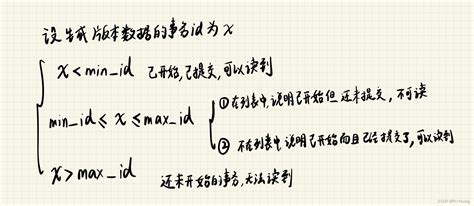 设生成版本数据的事务id为x
x < min_id 已开始,已提交,可以读到
min_id ≤ x ≤ max_id
① 在列表中,说明已开始但还未提交,不可读
② 不在列表中,说明已开始而且已经提交了,可以读到
x > max_id 还未开始的事务,无法读到